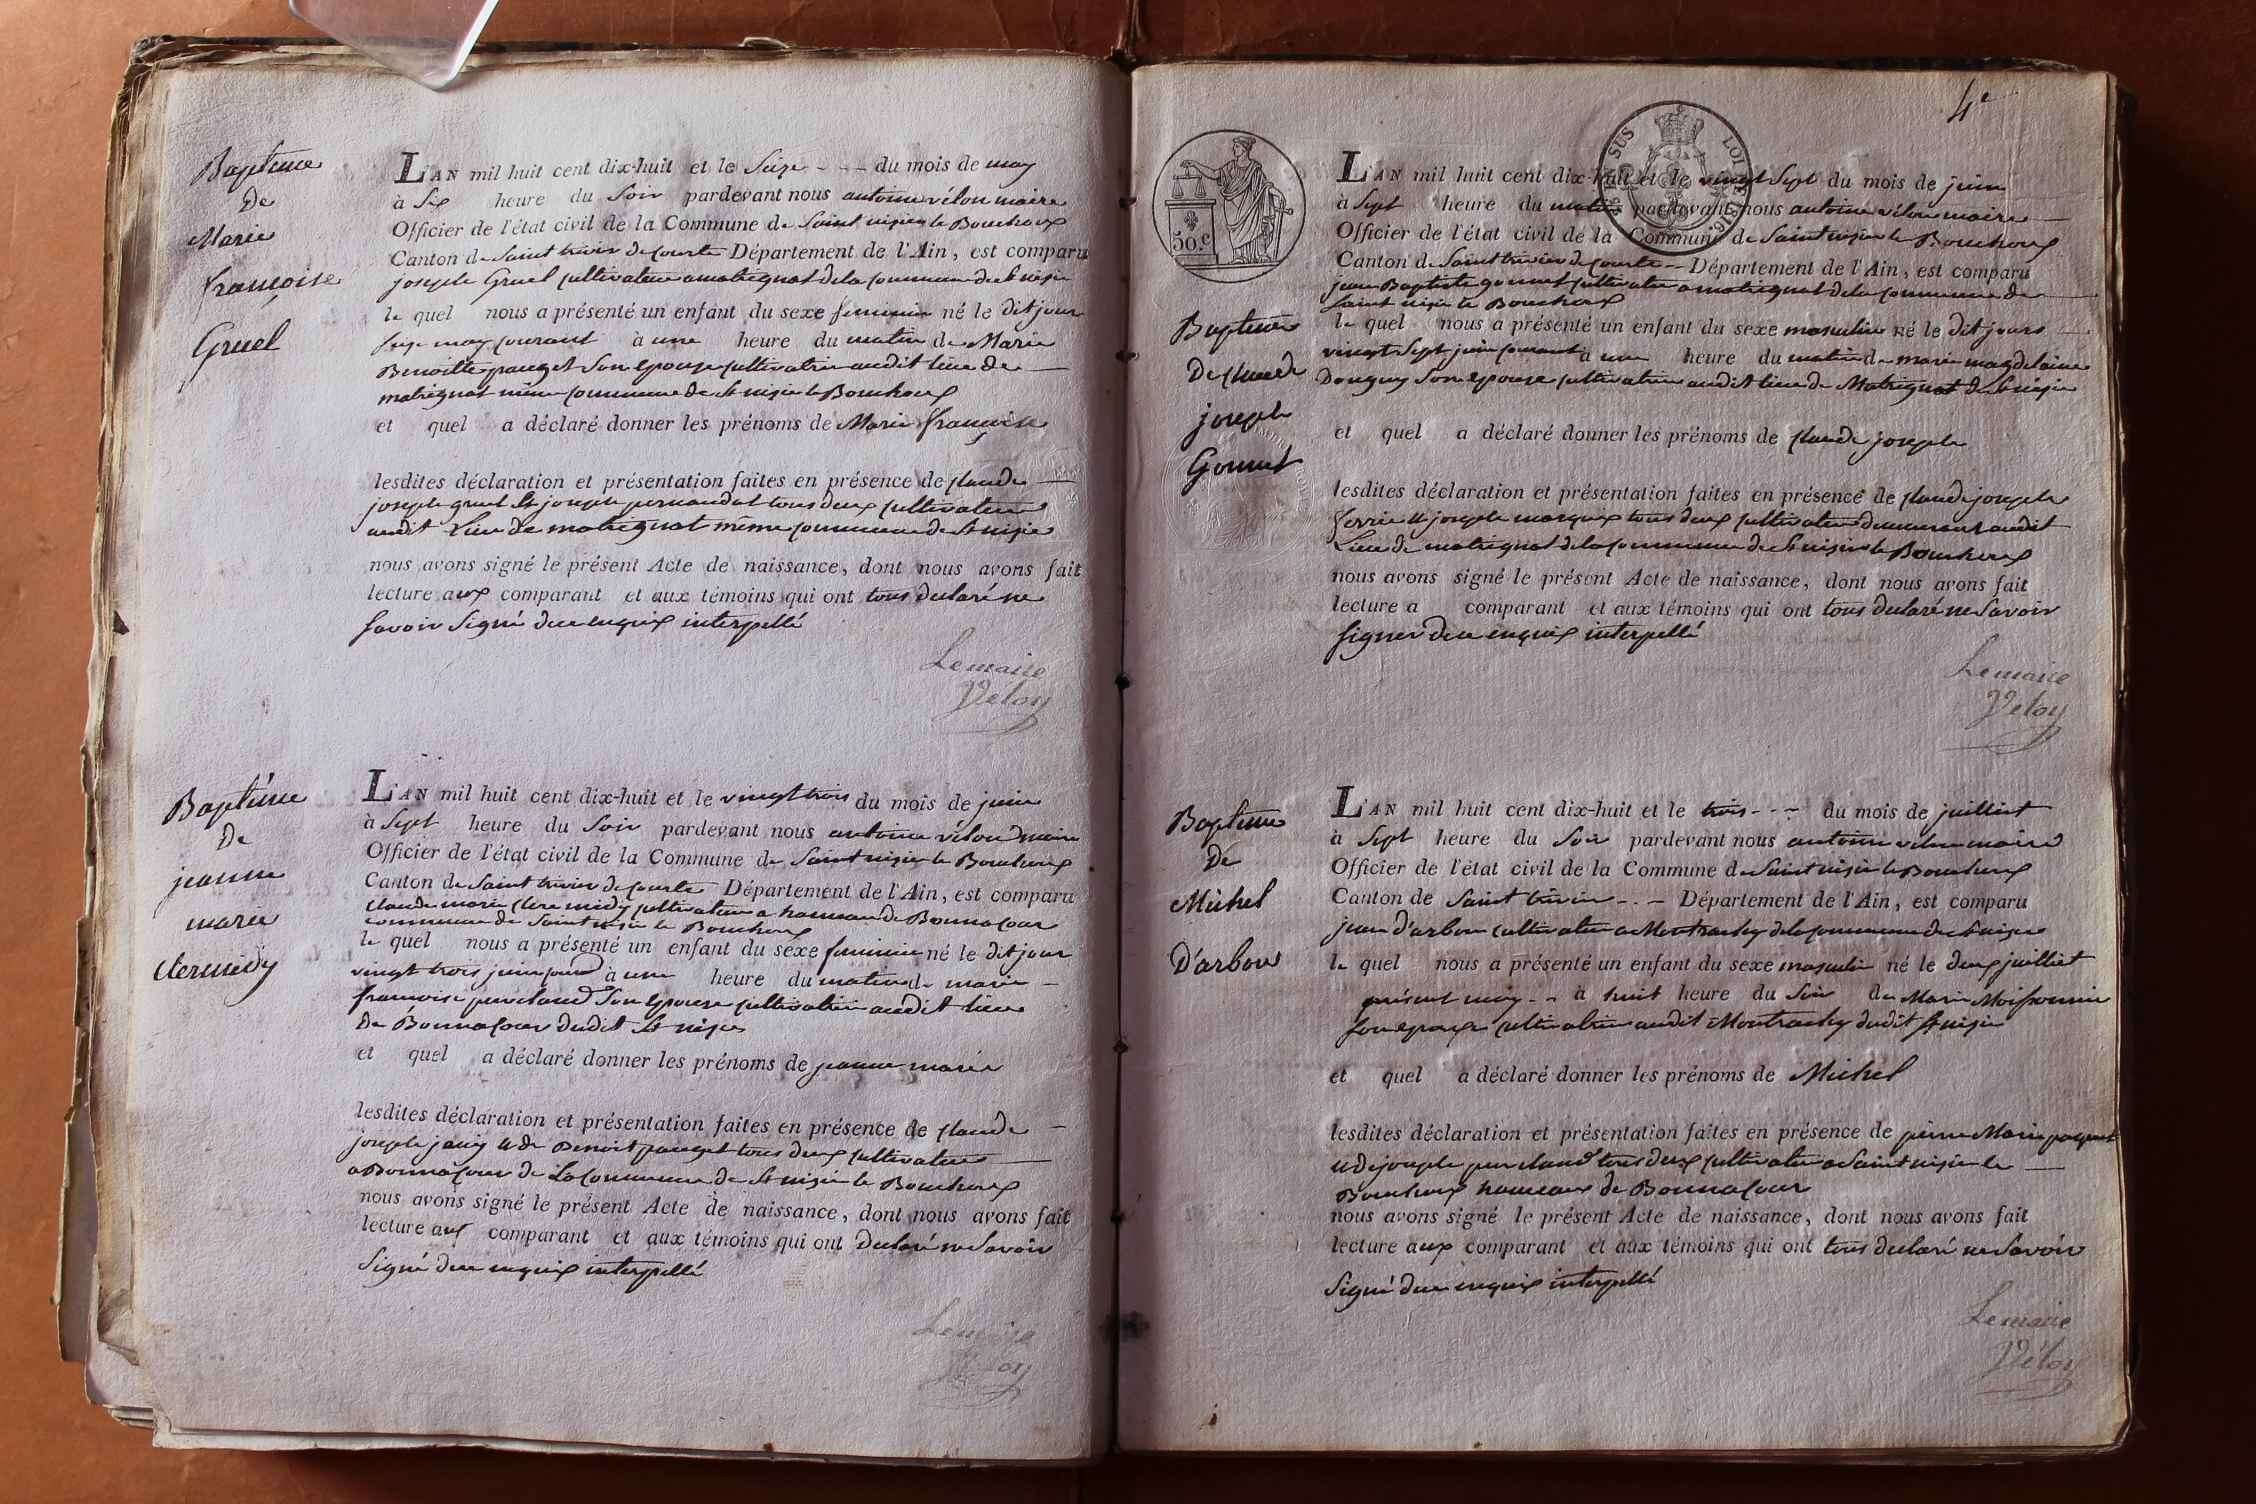 Baptême
De
Marie
françoise
Gruel
L'AN mil huit cent dix-huit et le Seize - - - du mois de may
à Six heure du Soir pardevant nous antoine vélon maire
Officier de l'état civil de la Commune de Saint nisier le Bouchoux
Canton de Saint trivier de Courtes Département de l'Ain, est comparu
joseph Gruel Cultivateur a matregnat de la Commune de St nisier
le quel nous a présenté un enfant du sexe feminin né le dit jour
Seize may Courant à une heure du matin de Marie
Benoitte pauget Son epouse Cultivatrice audit lieu de
matregnat même Commune de St nisier le Bouchoux
et quel a déclaré donner les prénoms de Marie françoise
lesdites déclaration et présentation faites en présence de Claude
joseph gruel et joseph tous deux Cultivateurs
audit Lieu de matregnat même Commune de St nisier
nous avons signé le présent Acte de naissance, dont nous avons fait
lecture aux comparant et aux témoins qui ont tous declaré ne
Savoir Signé de ce enquix interpellé
Lemaire
Veloy
Baptême
De
jeanne
marie
Clermidy
L'AN mil huit cent dix-huit et le vingt trois du mois de juin
à Sept heure du Soir pardevant nous antoine vélon maire
Officier de l'état civil de la Commune de Saint nisier le Bouchoux
Canton de Saint trivier de Courtes Département de l'Ain, est comparu
Claude marie Clermidy Cultivateur a hameau de Bonnacour
commune de Saint nisier le Bouchoux
le quel nous a présenté un enfant du sexe feminin né le dit jour
vingt trois juin à une heure du matin de marie
francoise Son epouse Cultivatrice audit lieu
de Bonnacour dudit St nisier
et quel a déclaré donner les prénoms de jeanne marie
lesdites déclaration et présentation faites en présence de Claude
joseph et de Benoit pauget tous deux Cultivateurs
a Bonnacour de la Commune de St nisier le Bouchoux
nous avons signé le présent Acte de naissance, dont nous avons fait
lecture aux comparant et aux témoins qui ont declaré ne Savoir
Signé de ce enquix interpellé
Lemaire
4e
SUS LOI
50.c
Baptême
De Claude
joseph
Gonnet
L'AN mil huit cent dix-huit et le vingt Sept du mois de juin
à Sept heure du matin pardevant nous antoine vélon maire
Officier de l'état civil de la Commune de Saint nisier le Bouchoux
Canton de Saint trivier de Courtes - Département de l'Ain, est comparu
jean Baptiste gonnet Cultivateur a matregnat de la Commune de
Saint nisier le Bouchoux
le quel nous a présenté un enfant du sexe masculin né le dit jours
vingt Sept juin Courant à une heure du matin de marie magdelaine
Donguy Son epouse Cultivatrice audit lieu de Matregnat de St nisier
et quel a déclaré donner les prénoms de Claude joseph
lesdites déclaration et présentation faites en présence de Claude joseph
et joseph marquix tous deux Cultivateurs demeurant audit
Lieu de matregnat de la Commune de St nisier le Bouchoux
nous avons signé le présent Acte de naissance, dont nous avons fait
lecture a comparant et aux témoins qui ont tous declaré ne Savoir
Signer de ce enquix interpellé
Lemaire
Veloy
Baptême
De
Michel
D'arbon
L'AN mil huit cent dix-huit et le trois - - - du mois de juilliet
à Sept heure du Soir pardevant nous antoine vélon maire
Officier de l'état civil de la Commune de Saint nisier le Bouchoux
Canton de Saint trivier - - - Département de l'Ain, est comparu
jean D'arbon Cultivateur a Montrachy de la Commune de St nisier
le quel nous a présenté un enfant du sexe masculin né le deux juilliet
présent moy - - à huit heure du Soir de Marie Moissonnier
Son epouse Cultivatrice audit Montrachy dudit St nisier
et quel a déclaré donner les prénoms de Michel
lesdites déclaration et présentation faites en présence de pierre Marie
et de joseph tous deux Cultivateur a Saint nisier le
Bouchoux hameaux de Bonnacour
nous avons signé le présent Acte de naissance, dont nous avons fait
lecture aux comparant et aux témoins qui ont tous declaré ne Savoir
Signé de ce enquix interpellé
Lemaire
Véloy